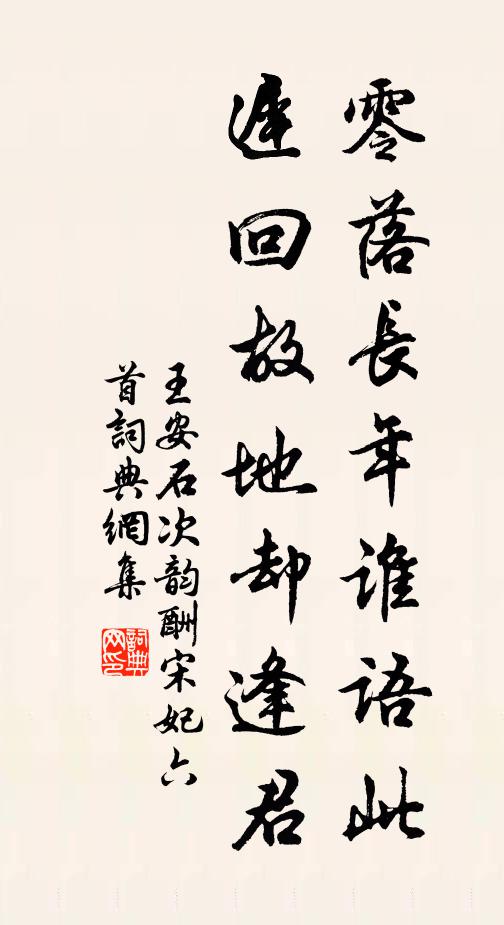 零落長年誰語此
遲回故地却逢君
王安石次韵酬宋妃六
首詞典網集
詞典网印